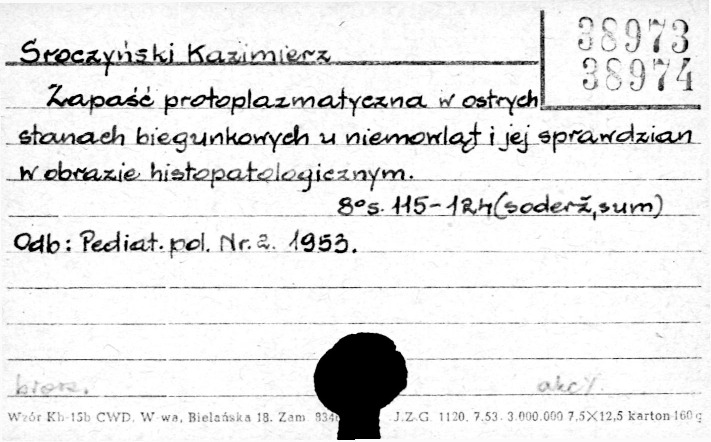 38973
38974
Sroczyński Kazimierz
Zapaść protoplazmatyczna w ostrych
stanach biegunkowych u niemowląt i jej sprawdzian
w obrazie histopatologicznym.
8° s. 115-124 (soderž, sum)
Odb: Pediat. pol. Nr. 2. 1953.
brosz. akcy.
Wzór Kh-15b CWD. W-wa, Bielańska 18. Zam. J.Z.G. 1120. 7.53. 3.000.000 7,5×12,5 karton 160 g